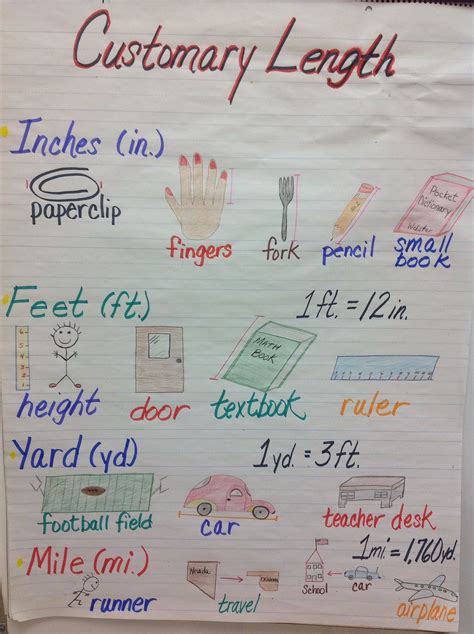 Customary Length
Inches (in.)
paperclip
fingers
fork
pencil
Pocket Dictionary
Webster
small book
Feet (ft.)
1ft. = 12 in.
6
5
4
3
2
1
MATH BOOK
height
door
textbook
ruler
Yard (yd)
1yd. = 3ft.
football field
car
teacher desk
Mile (mi.)
1mi. = 1,760yd.
Nevada
runner
travel
School
car
airplane